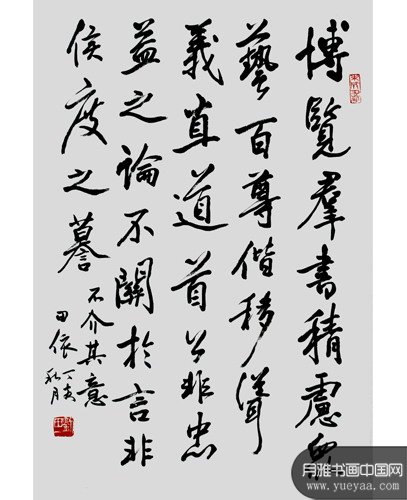 博覽羣書積慮
藝百尊偕移
義直道首公非忠
益之論不關於言非
侯度之謩
不介其意
丁亥秋月
田依
月雅书画中国网
www.yueyaa.com